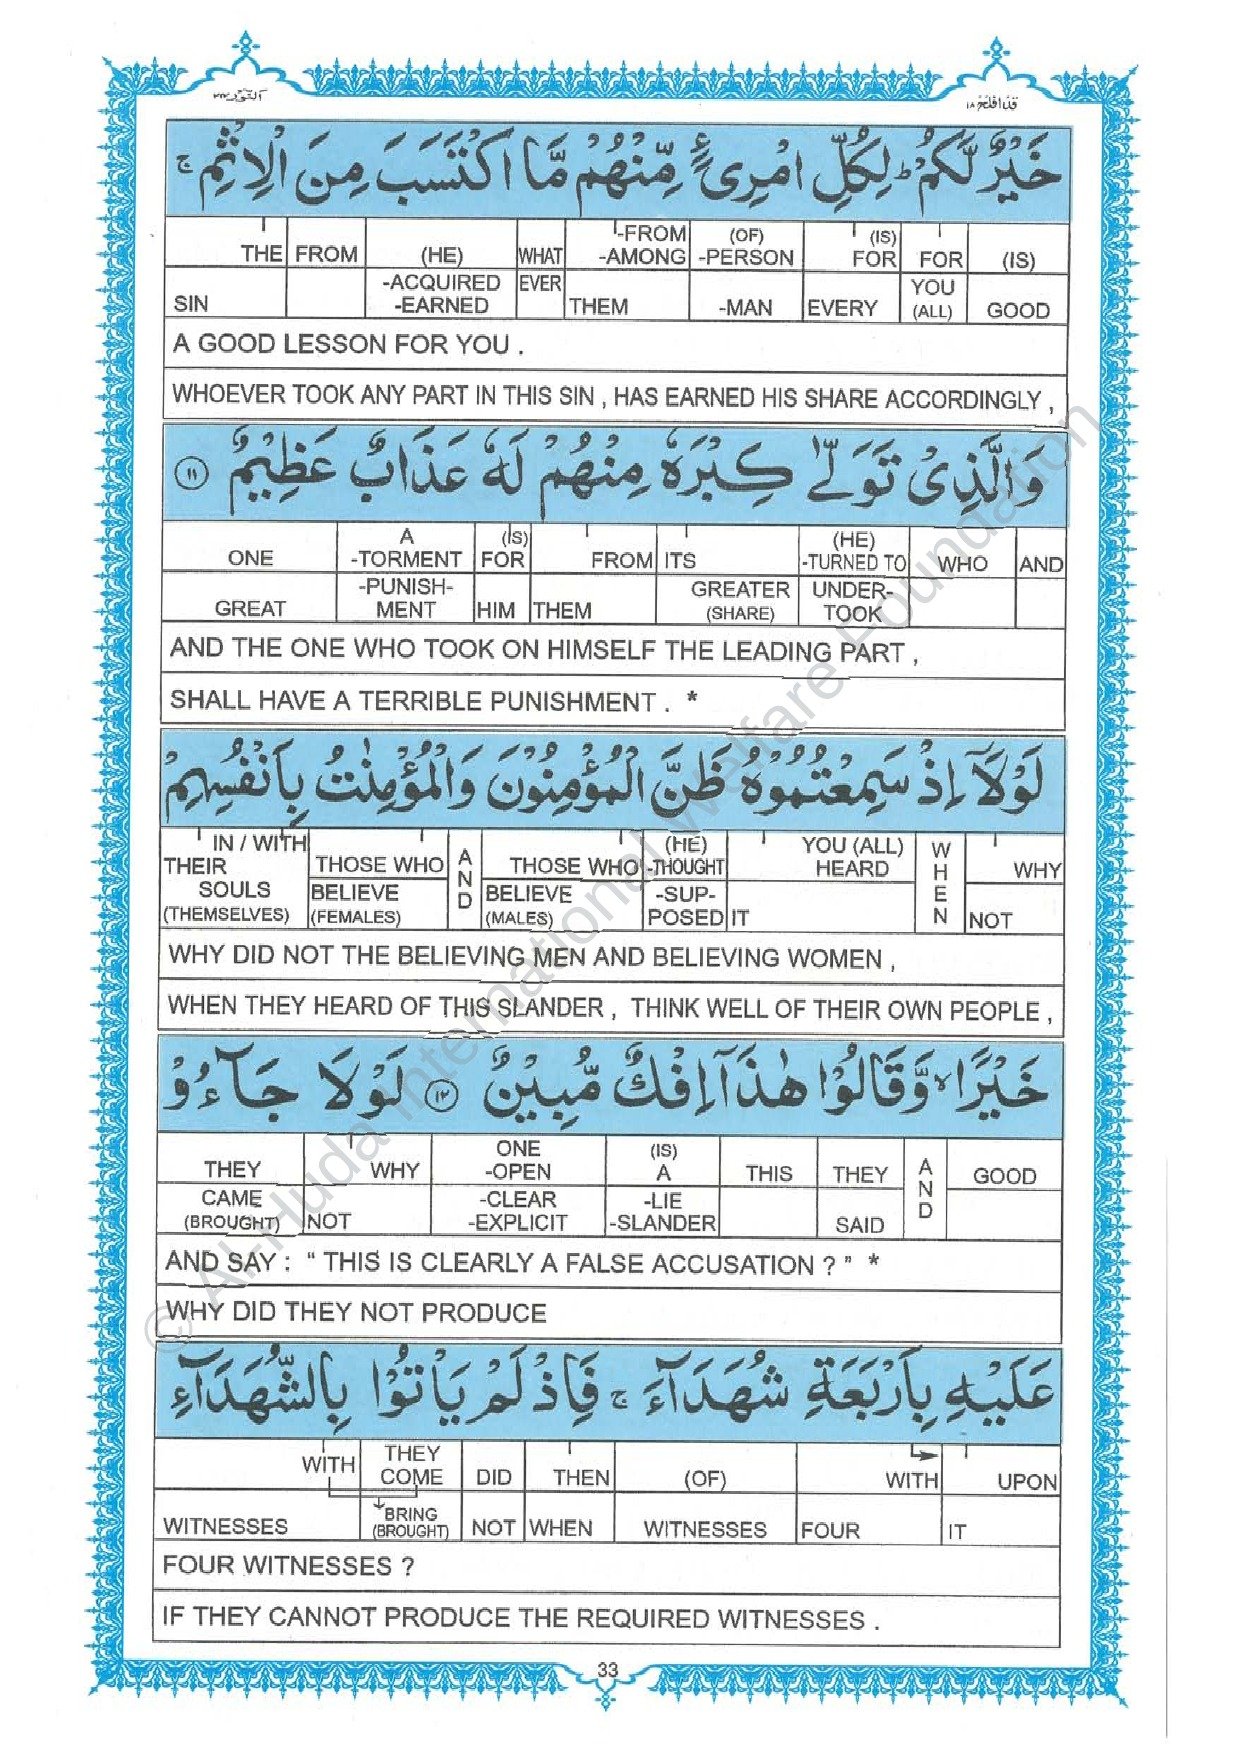 النور ٢٤
قد افلح ١٨
خَيْرٌ لَّكُمْ ؕ لِكُلِّ امْرِئٍ مِّنْهُمْ مَّا اكْتَسَبَ مِنَ الْاِثْمِ ۚ
THE FROM (HE) WHAT -FROM -AMONG (OF) -PERSON (IS) FOR FOR (IS)
SIN -ACQUIRED -EARNED EVER THEM -MAN EVERY YOU (ALL) GOOD
A GOOD LESSON FOR YOU .
WHOEVER TOOK ANY PART IN THIS SIN , HAS EARNED HIS SHARE ACCORDINGLY ,
وَالَّذِىْ تَوَلّٰى كِبْرَهٗ مِنْهُمْ لَهٗ عَذَابٌ عَظِيْمٌ ۱۱
ONE A -TORMENT (IS) FOR FROM ITS (HE) -TURNED TO WHO AND
GREAT -PUNISH- MENT HIM THEM GREATER (SHARE) UNDER- TOOK
AND THE ONE WHO TOOK ON HIMSELF THE LEADING PART ,
SHALL HAVE A TERRIBLE PUNISHMENT . *
لَوْلَاۤ اِذْ سَمِعْتُمُوْهُ ظَنَّ الْمُؤْمِنُوْنَ وَالْمُؤْمِنٰتُ بِاَنْفُسِهِمْ
IN / WITH THEIR THOSE WHO AND THOSE WHO (HE) -THOUGHT YOU (ALL) HEARD WHEN WHY
SOULS (THEMSELVES) BELIEVE (FEMALES) BELIEVE (MALES) -SUP- POSED IT NOT
WHY DID NOT THE BELIEVING MEN AND BELIEVING WOMEN ,
WHEN THEY HEARD OF THIS SLANDER , THINK WELL OF THEIR OWN PEOPLE ,
خَيْرًا ۙ وَّقَالُوْا هٰذَاۤ اِفْكٌ مُّبِيْنٌ ۱۲ لَوْلَا جَآءُوْ
THEY WHY ONE -OPEN (IS) A THIS THEY AND GOOD
CAME (BROUGHT) NOT -CLEAR -EXPLICIT -LIE -SLANDER SAID
AND SAY : " THIS IS CLEARLY A FALSE ACCUSATION ? " *
WHY DID THEY NOT PRODUCE
عَلَيْهِ بِاَرْبَعَةِ شُهَدَآءَ ۚ فَاِذْ لَمْ يَاْتُوْا بِالشُّهَدَآءِ
WITH THEY COME DID THEN (OF) WITH UPON
WITNESSES BRING (BROUGHT) NOT WHEN WITNESSES FOUR IT
FOUR WITNESSES ?
IF THEY CANNOT PRODUCE THE REQUIRED WITNESSES .
33
© Al-Huda International Welfare Foundation